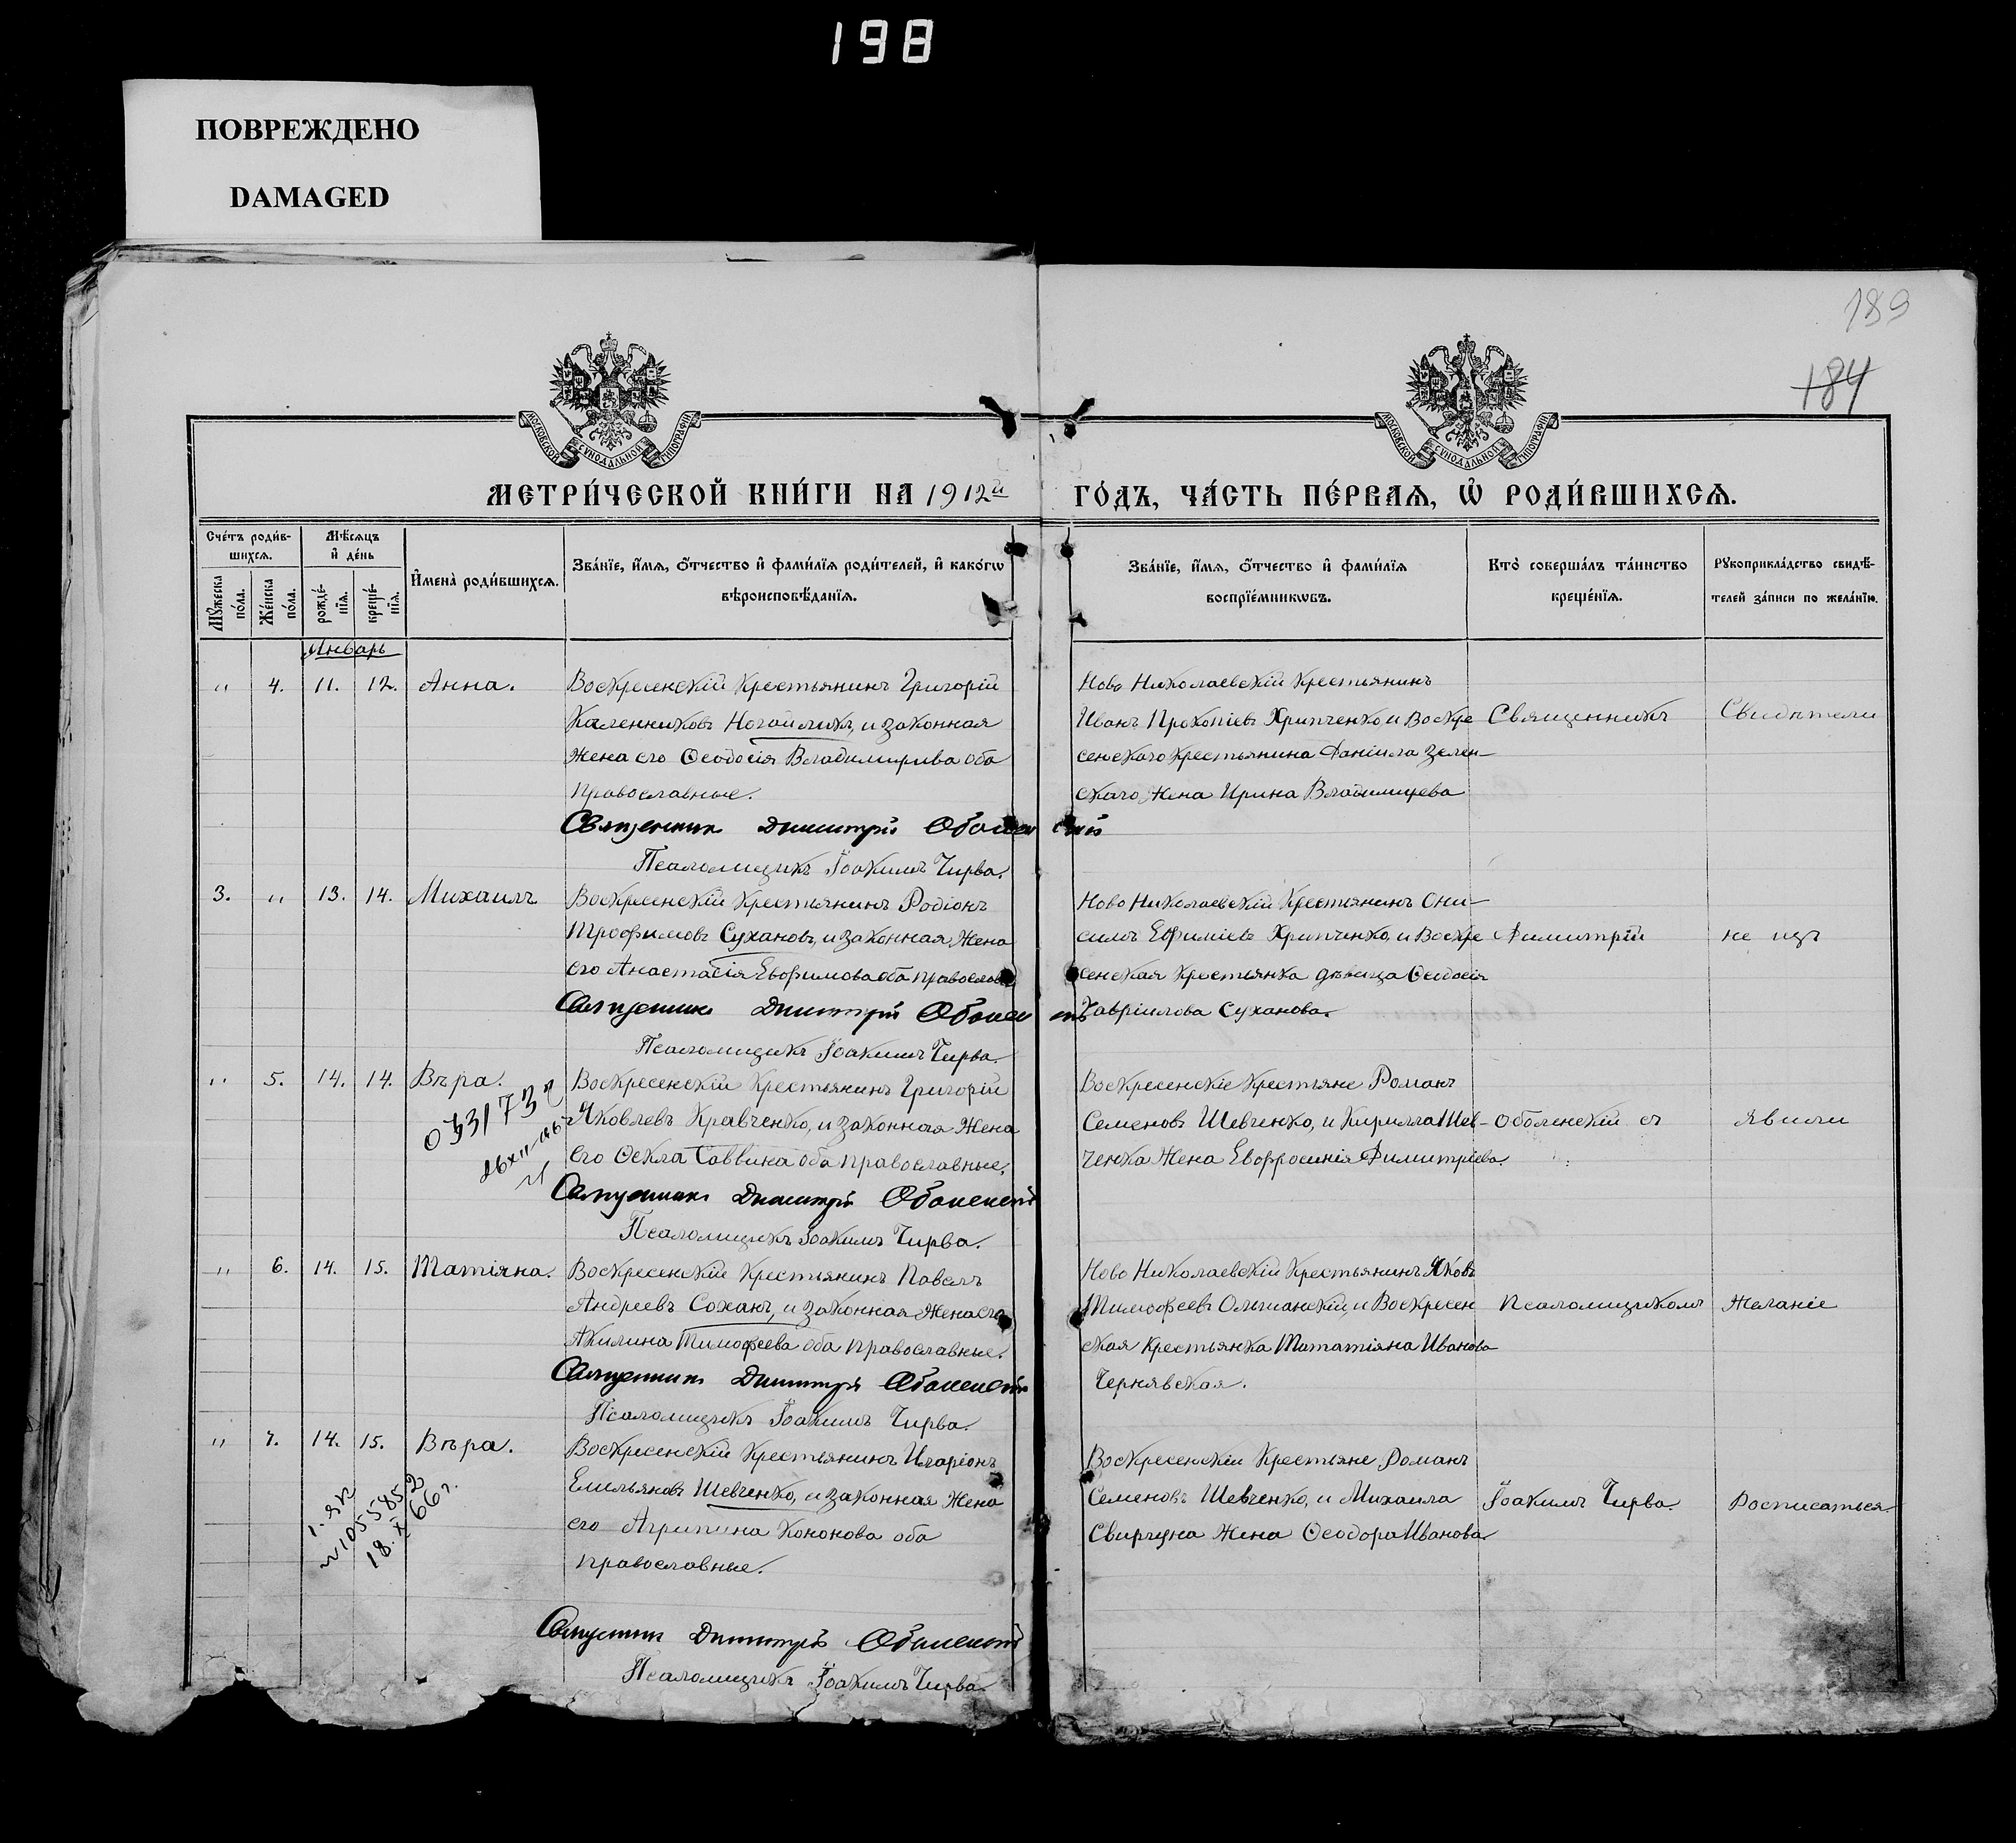 198
ПОВРЕЖДЕНО
DAMAGED
189
184
МОСКОВСКОЙ СУНОДАЛЬНОЙ ТИПОГРАФІИ
МОСКОВСКОЙ СУНОДАЛЬНОЙ ТИПОГРАФІИ
МЕТРИ́ЧЕСКОЙ КНИ́ГИ НА 1912й ГО́ДЪ, ЧА́СТЬ ПЕ́РВАЯ, Ѡ РОДИ́ВШИХСЯ.
Сче́тъ роди́в-
шихся.
Мѣ́сяцъ
и де́нь
Му́жеска
по́ла.
Же́нска
по́ла.
рожде́-
нїя.
креще́-
нїя.
И́мена роди́вшихся.
Зва́нїе, и́мя, о́тчество и фами́лїя роди́телей, и како́гѡ
вѣроисповѣ́данїя.
Зва́нїе, и́мя, о́тчество и фами́лїя
воспрїе́мникѡвъ.
Кто̀ соверша́лъ та́инство
креще́нїя.
Рꙋкоприкла́дство свидѣ́-
телей за́писи по жела́нїю.
Январь
" 4. 11. 12. Анна. Воскресенскій Крестьянинъ Григорій
Каленниковъ Ногайликъ, и законная
жена его Ѳеодосія Владимирива оба
православные.
Священник Димитрій Оболенский
Псаломщикъ Іоакимъ Чирва.
Ново Николаевскій Крестьянинъ
Иванъ Прокопіевъ Хрипченко и Воскре
сенскаго крестьянина Даніила Зелен-
скаго жена Ирина Владимирева
3. " 13. 14. Михаилъ Воскресенскій Крестьянинъ Родіонъ
Трофимовъ Сухановъ, и законная жена
его Анастасія Евфимова оба православ
Священник Димитрий Оболен
Псаломщикъ Іоакимъ Чирва.
Ново Николаевскій Крестьянинъ Они-
симъ Ефиміевъ Хрипченко, и Воскре
сенская Крестьянка дѣвица Ѳеодосія
Гавріилова Суханова.
" 5. 14. 14. Вѣра. Воскресенскій Крестьянинъ Григорій
Яковлевъ Кравченко, и законная жена
его Ѳекла Саввина оба православные.
Священник Димитрий Оболенский
Псаломщикъ Іоакимъ Чирва.
Воскресенскіе Крестьяне Романъ
Семеновъ Шевченко, и Кирилла Шев-
ченка жена Евфросинія Димитріева.
" 6. 14. 15. Татіяна. Воскресенскій Крестьянинъ Павелъ
Андреевъ Соханъ, и законная жена его
Акилина Тимофеева оба православные.
Священник Димитрий Оболенский
Псаломщикъ Іоакимъ Чирва.
Ново Николаевскій Крестьянинъ Яковъ
Тимофеевъ Ольшанскій, и Воскресен
ская крестьянка Тататіяна Иванова
Чернявская.
" 7. 14. 15. Вѣра. Воскресенскій Крестьянинъ Иларіонъ
Емильяновъ Шевченко, и законная жена
его Агрипина Кононова оба
православные.
105 5852
18.X 66 г.
Священник Димитрий Оболенский
Псаломщикъ Іоакимъ Чирва
Воскресенскіи Крестьяне Романъ
Семеновъ Шевченко, и Михаила
Свиргуна жена Ѳеодора Иванова.
Священникъ
Димитрій
Оболенскій съ
псаломщикомъ
Іоакимъ Чирва.
Свидѣтели
не изъ
явили
желаніе
росписаться.